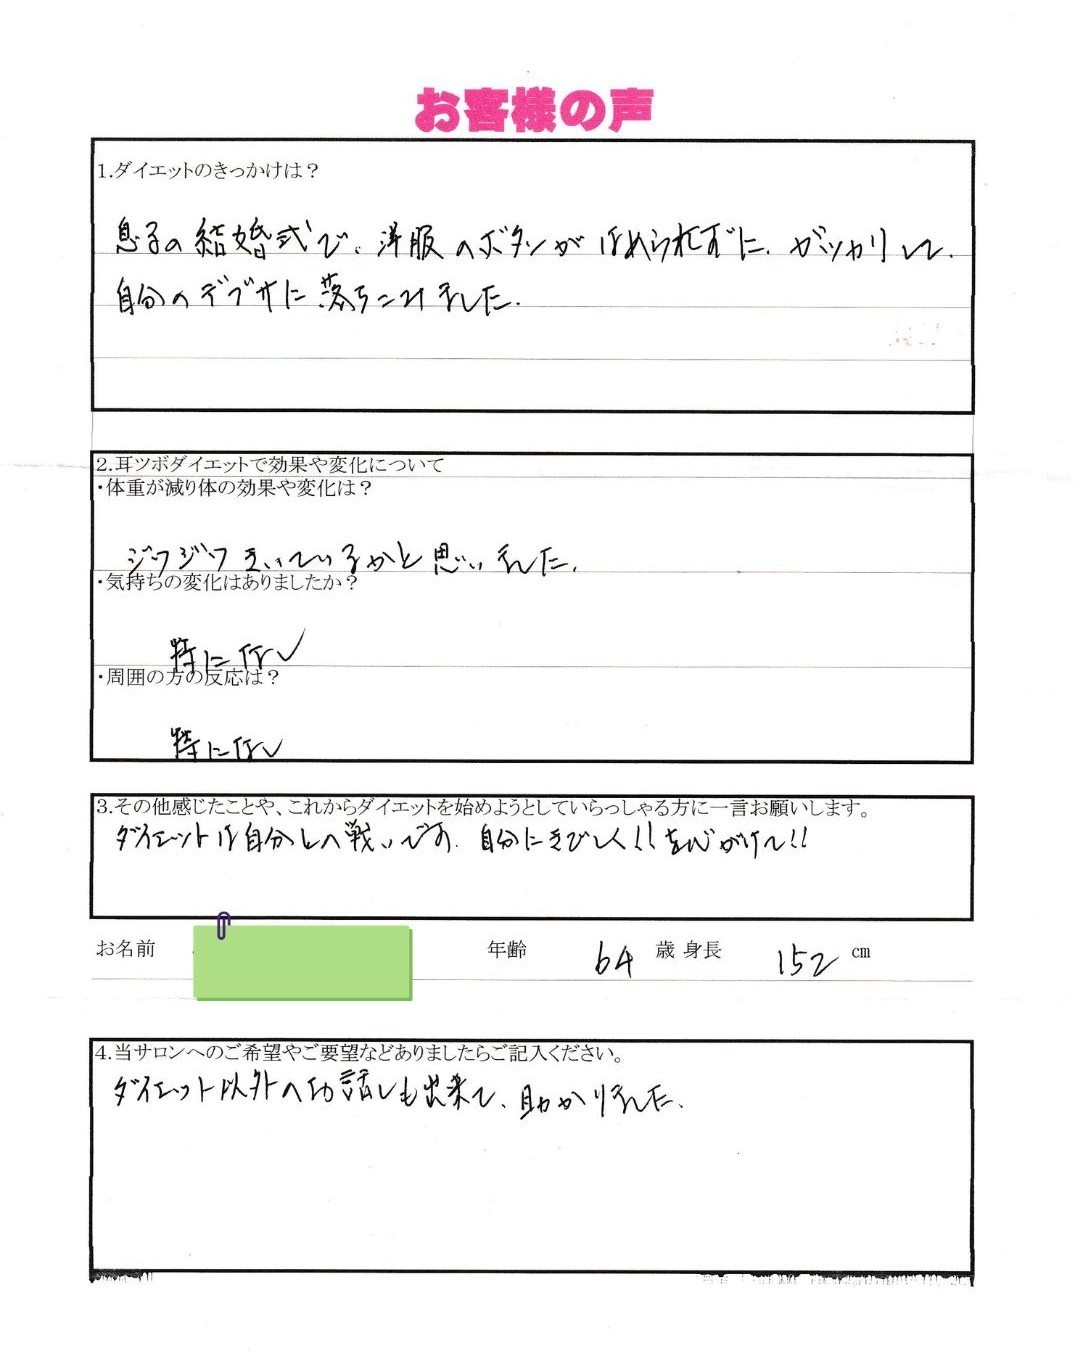 お客様の声
1.ダイエットのきっかけは？
息子の結婚式で、洋服のボタンがはめられずに、ガッカリして、
自分のデブサに落ちこみました。
2.耳ツボダイエットで効果や変化について
・体重が減り体の効果や変化は？
ジワジワきいているかと思いました。
・気持ちの変化はありましたか？
特にない
・周囲の方の反応は？
特にない
3.その他感じたことや、これからダイエットを始めようとしていらっしゃる方に一言お願いします。
ダイエットは自分との戦いです。自分にきびしく!!を心がけて!!
お名前 年齢 64 歳 身長 152 cm
4.当サロンへのご希望やご要望などありましたらご記入ください。
ダイエット以外のお話しも出来て、助かりました。